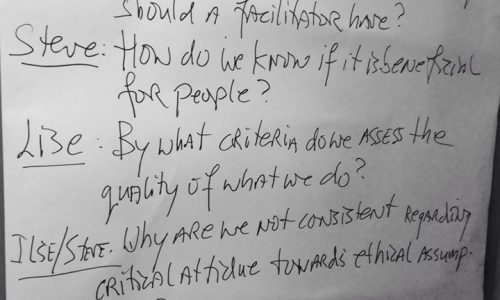 Should A facilitator have?
Steve: How do we know if it is beneficial
for people?
LiBe: By what criteria do we ASSESS the
quality of what we do?
ILSE/STEVE. Why ARE we NOT CONSISTENT REGARDING
CRITICAL Attidue TOWARDS ethical Assump.